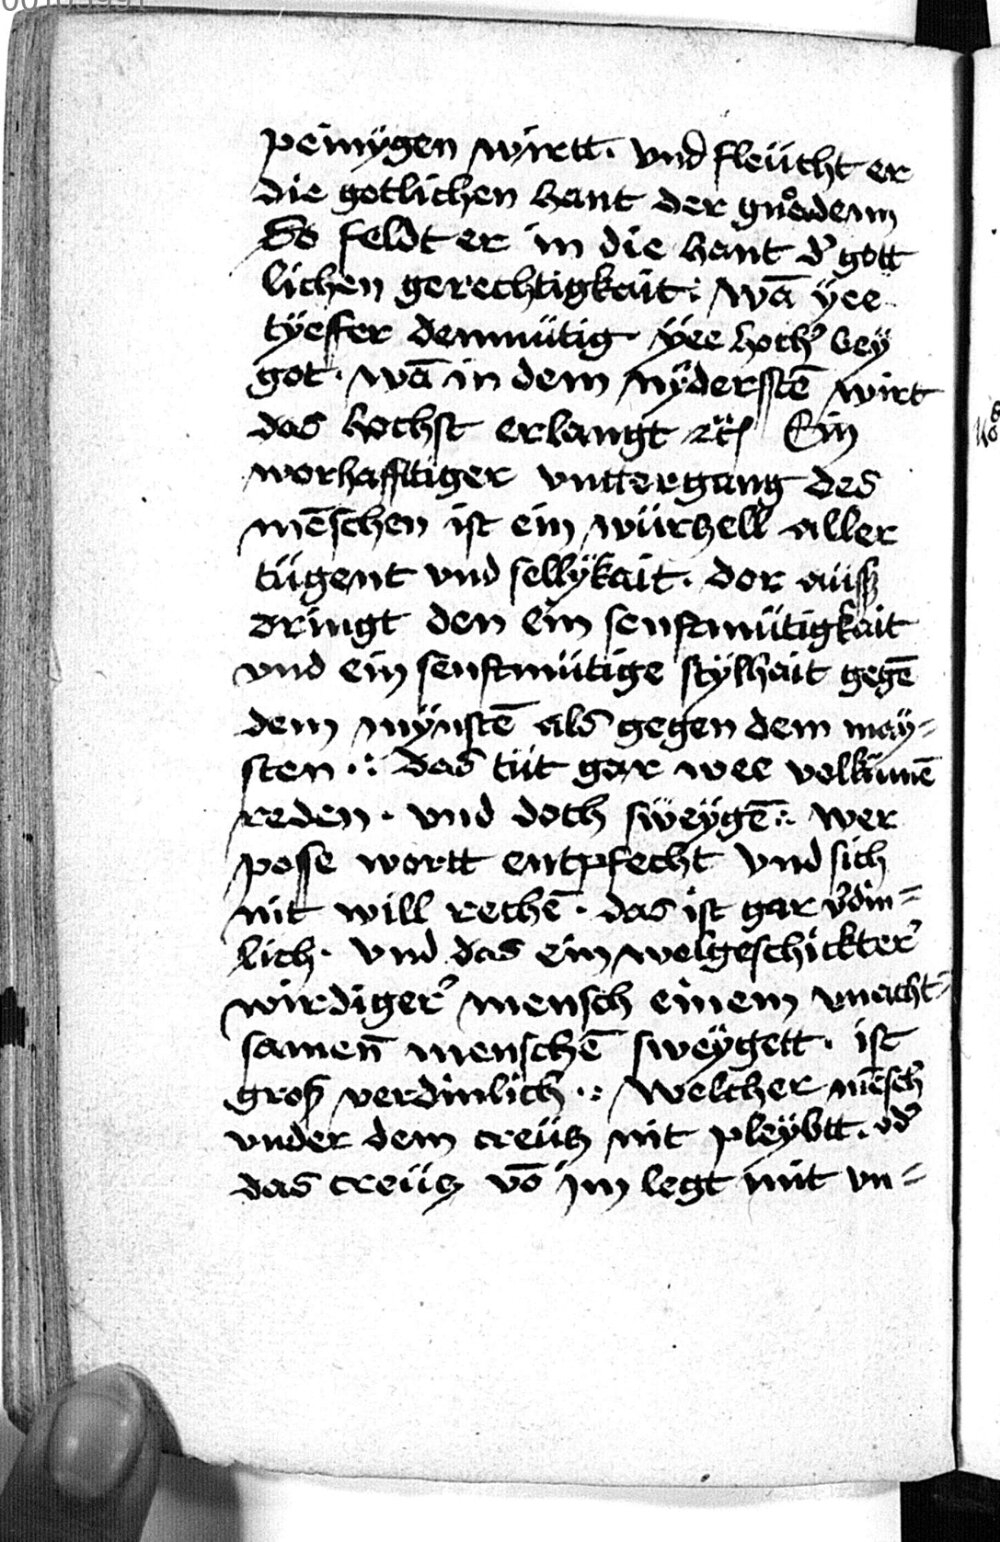 peinÿgen wirtt. vnd fleücht er
die gotlichen hant der gnoͤdenn
So feldt er in die hant d̕ gott
lichen gerechtigkait: wā ÿee
tÿeffer demmütig ÿee hoch̕ beÿ
got. wā in dem nÿderstē wirt
das hochst erlangt ꝛc̈ Ein
worhafftiger vnttergang des
mēschen ist ein würtzell aller
tügent vnd sellÿkait. dor aüß
dringt den ein senftmütigkait
vnd ein senftmütige stÿlhait gegē
dem mÿnstē als gegen dem maÿ=
sten .:. das tüt gar wee volkūmē
reden. vnd doch swëÿgē .:. wer
posse wortt entpfecht vnd sich
nit will rechē. das ist gar v̕din=
lich. vnd das ein wolgeschickter̕
wirdiger̕ mensch einem vnacht=
samen̄ menschē swëÿgett. ist
groß verdinlich .:. welcher mēsch
vnder dem creütz nit pleÿbtt. vd̕
das creütz vō im legt mit vn=